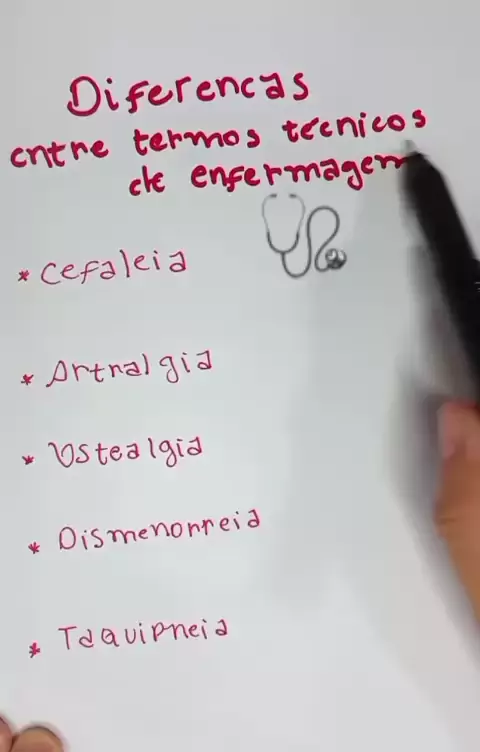 Diferencas
entre termos técnicos
de enfermagem
* Cefaleia
* Artralgia
* Ostealgia
* Dismenorreia
* Taquipneia